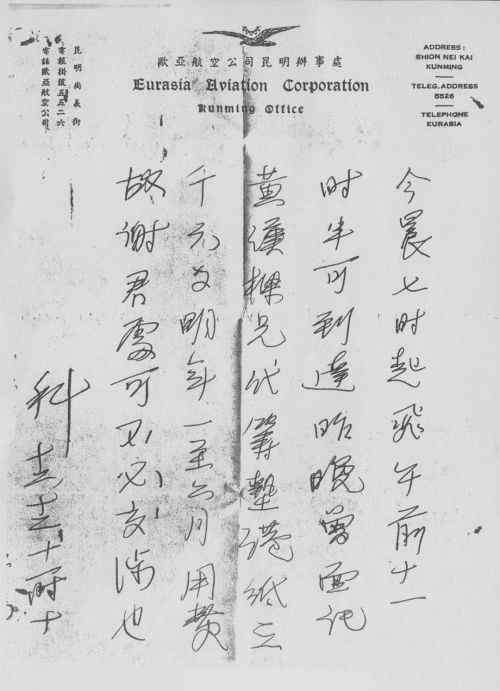 歐亞航空公司昆明辦事處
Eurasia Aviation Corporation
Kunming Office
ADDRESS:
SHION NEI KAI
KUNMING
TELEG. ADDRESS
5526
TELEPHONE
EURASIA
昆明尚義街
電報掛號五五二六
電話歐亞航空公司
今晨七时起飛午前十一
时半可到達昨晚曾面託
黃漢樑兄代籌墊港紙三
千元为明年一至六月用費
故謝君處可不必交涉也
科